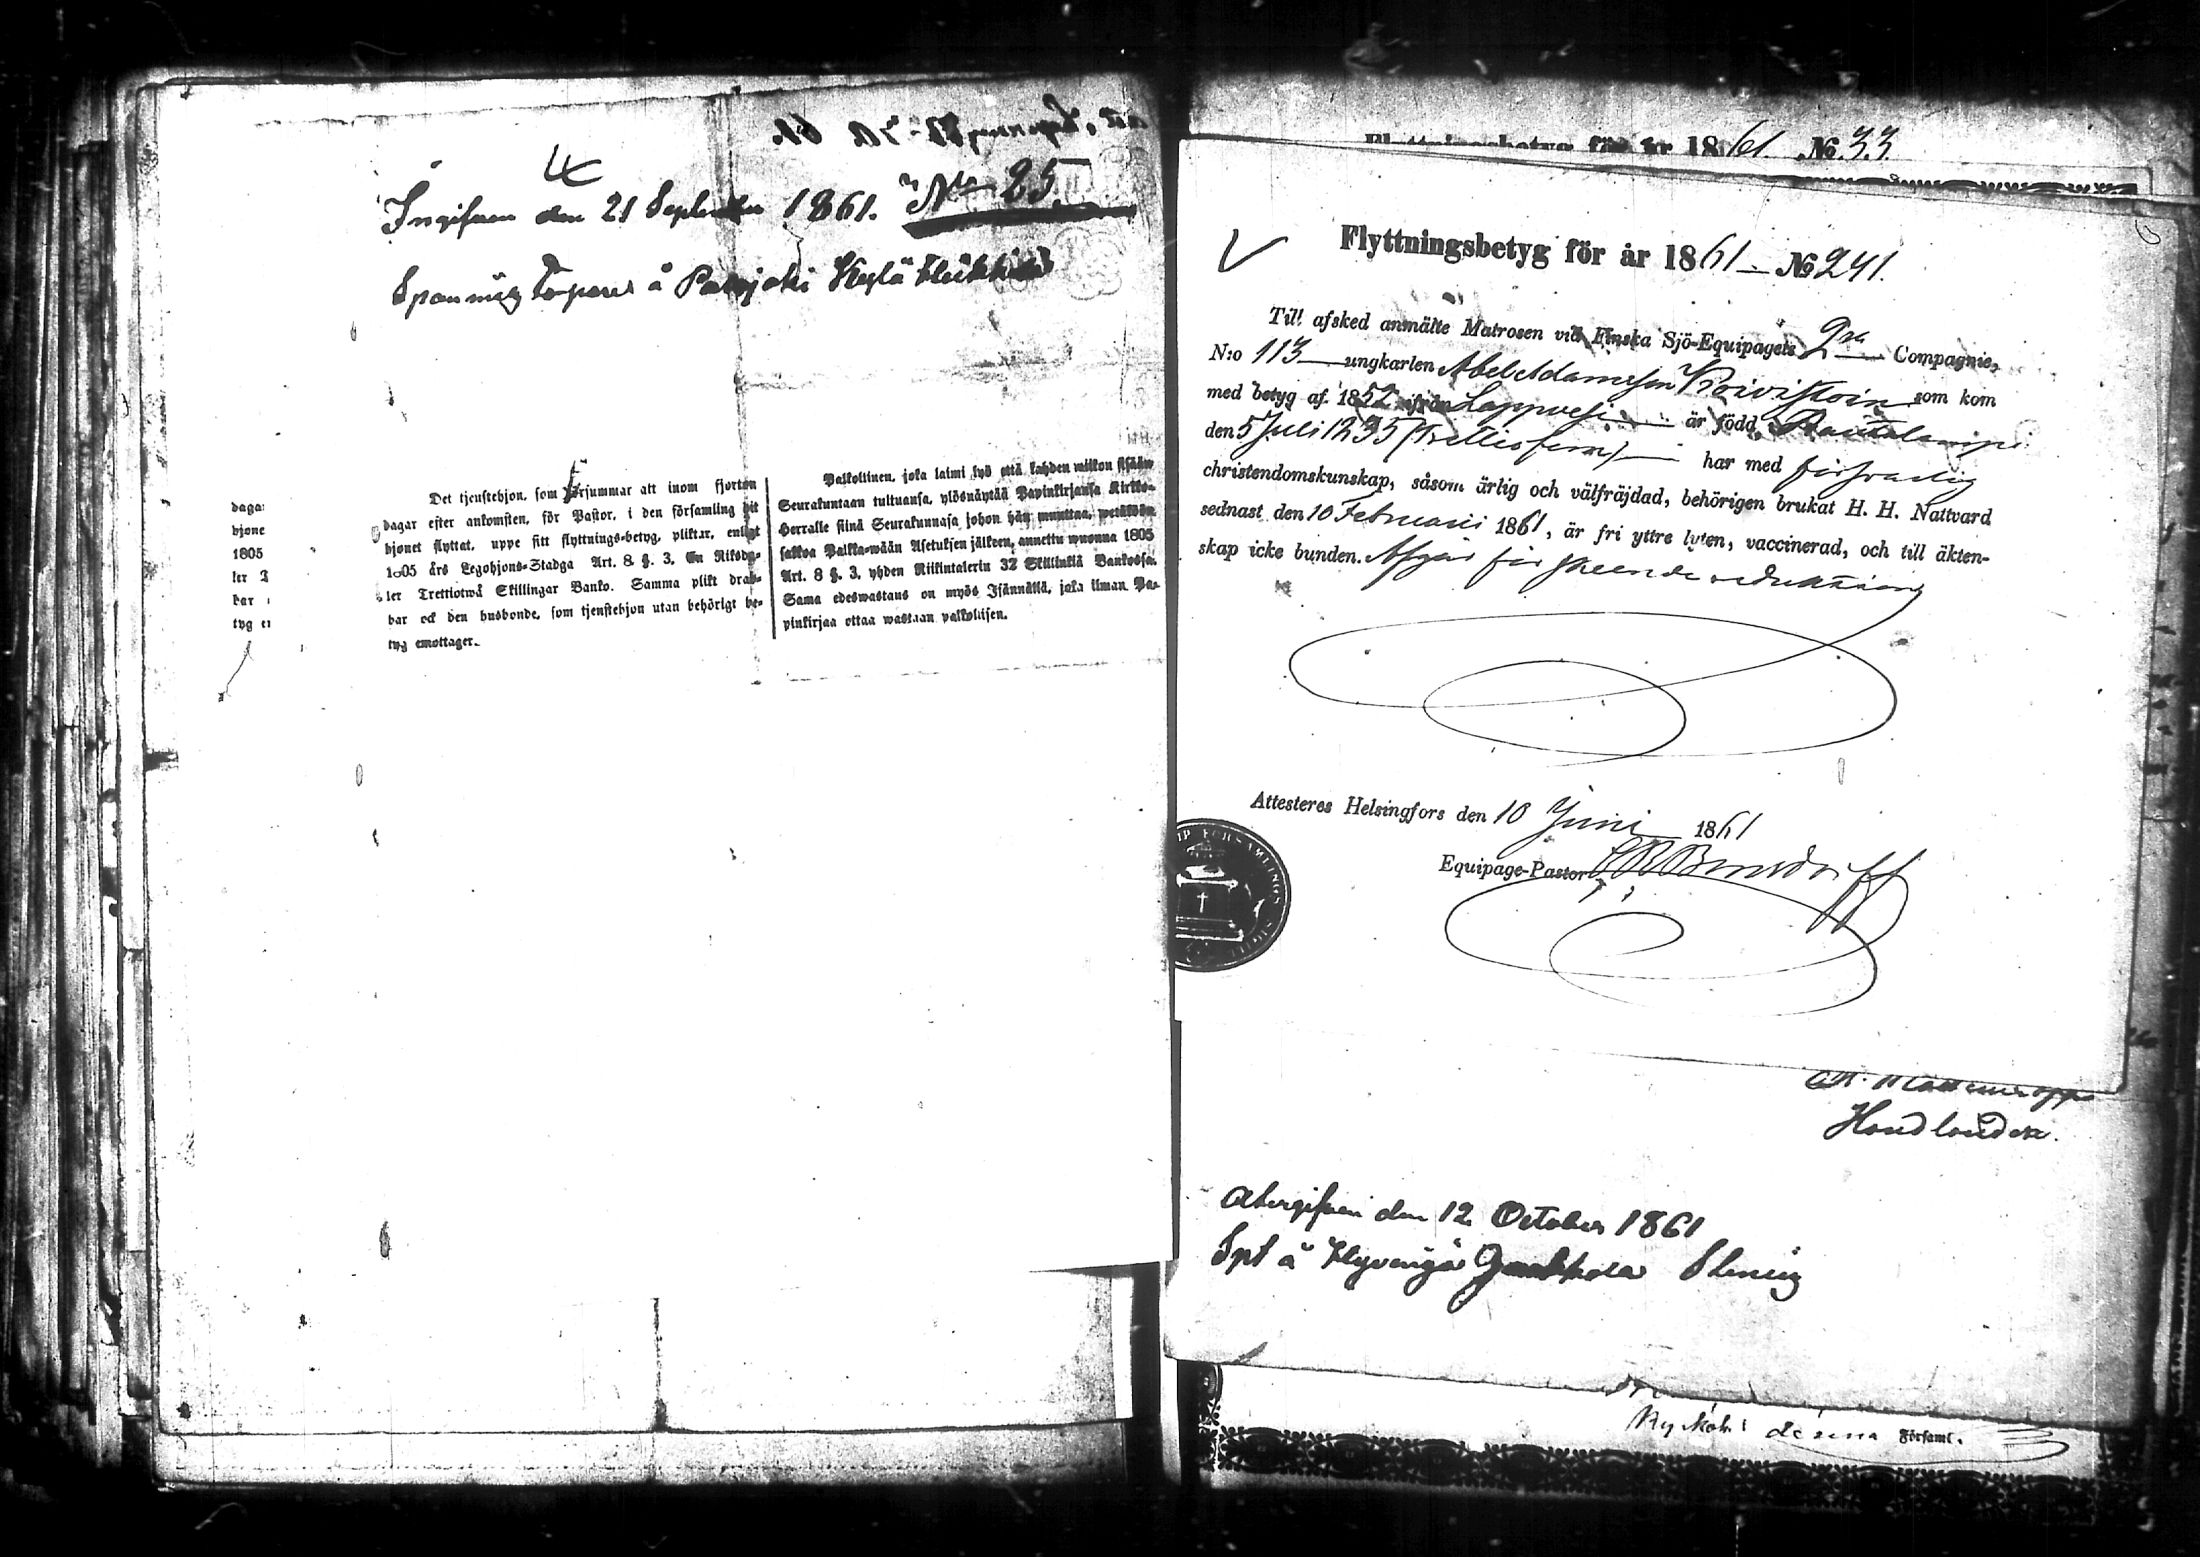 4
Ingifven den 21 September 1861. No 25
å Palojoki Heikkilä
daga
bjone
1805
ler
bar
tyg e
Det tjenstehjon, som försummar att inom fjorton
dagar efter ankomsten, för Pastor, i den församling dit
hjonet flyttat, uppe sitt flyttnings-betyg, pliktar, enligt
1805 års Legohjons-Stadga Art. 8 §. 3, En Riksda-
ler Trettiotwå Skillingar Banko. Samma plikt drab-
bar ock den husbonde, som tjenstehjon utan behörigt be-
tyg emottager.
Palkollinen, joka laimi lyö että kahden wiikon sisään
Seurakuntaan tultuansa, ylösnäytää Papinkirjansa Kirkko-
Herralle siinä Seurakunnasa johon hän muuttaa, wetäköön
sakkoa Palkka-wään Asetuksen jälkeen, annettu wuonna 1805
Art. 8 §. 3, yhden Riikintalerin 32 Skillinkiä Bankossa.
Sama edeswastaus on myös Isännällä, joka ilman Pa-
pinkirjaa ottaa wastaan palkollisen.
Flyttningsbetyg för år 1861. No 33
Flyttningsbetyg för år 1861 — No 241.
Till afsked anmälte Matrosen vid Finska Sjö-Equipagets 2ra Compagnie,
N:o 113 ungkarlen Abel Adamsson Koivistoin som kom
med betyg af 1852 ifrån Lappvesi är född i Rautalampi
den 5 Juli 1835 (trettiofem) har med försvarlig
christendomskunskap, såsom ärlig och välfräjdad, behörigen brukat H. H. Nattvard
sednast den 10 Februarii 1861, är fri yttre lyten, vaccinerad, och till äkten-
skap icke bunden. Afgår för skeende reduktion
Attesteres Helsingfors den 10 Juni 1861
Equipage-Pastor
Handlande
den 12 October 1861
å Hyvinge
denna Församl.